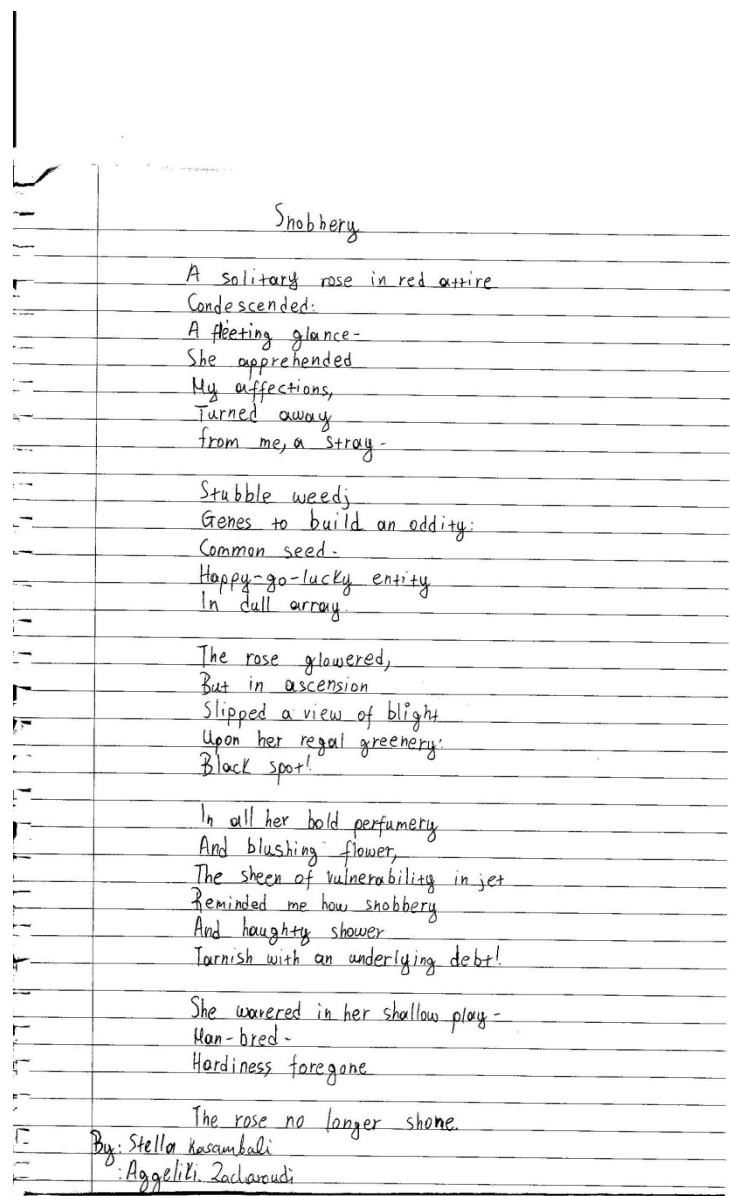 Snobbery
A solitary rose in red attire
Condescended:
A fleeting glance-
She apprehended
My affections,
Turned away
from me, a stray-
Stubble weed;
Genes to build an oddity:
Common seed-
Happy-go-lucky entity
In dull array.
The rose glowered,
But in ascension
Slipped a view of blight
Upon her regal greenery:
Black spot!
In all her bold perfumery
And blushing flower,
The sheen of vulnerability in jet
Reminded me how snobbery
And haughty shower
Tarnish with an underlying debt!
She wavered in her shallow play-
Man-bred-
Hardiness foregone
The rose no longer shone.
By: Stella Kasambali
:Aggeliki Zacharoudi